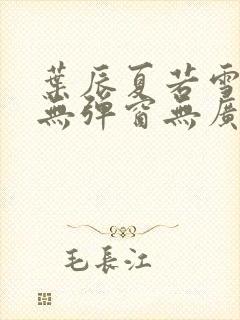 葉辰夏若雪
無彈窗無廣
毛長江